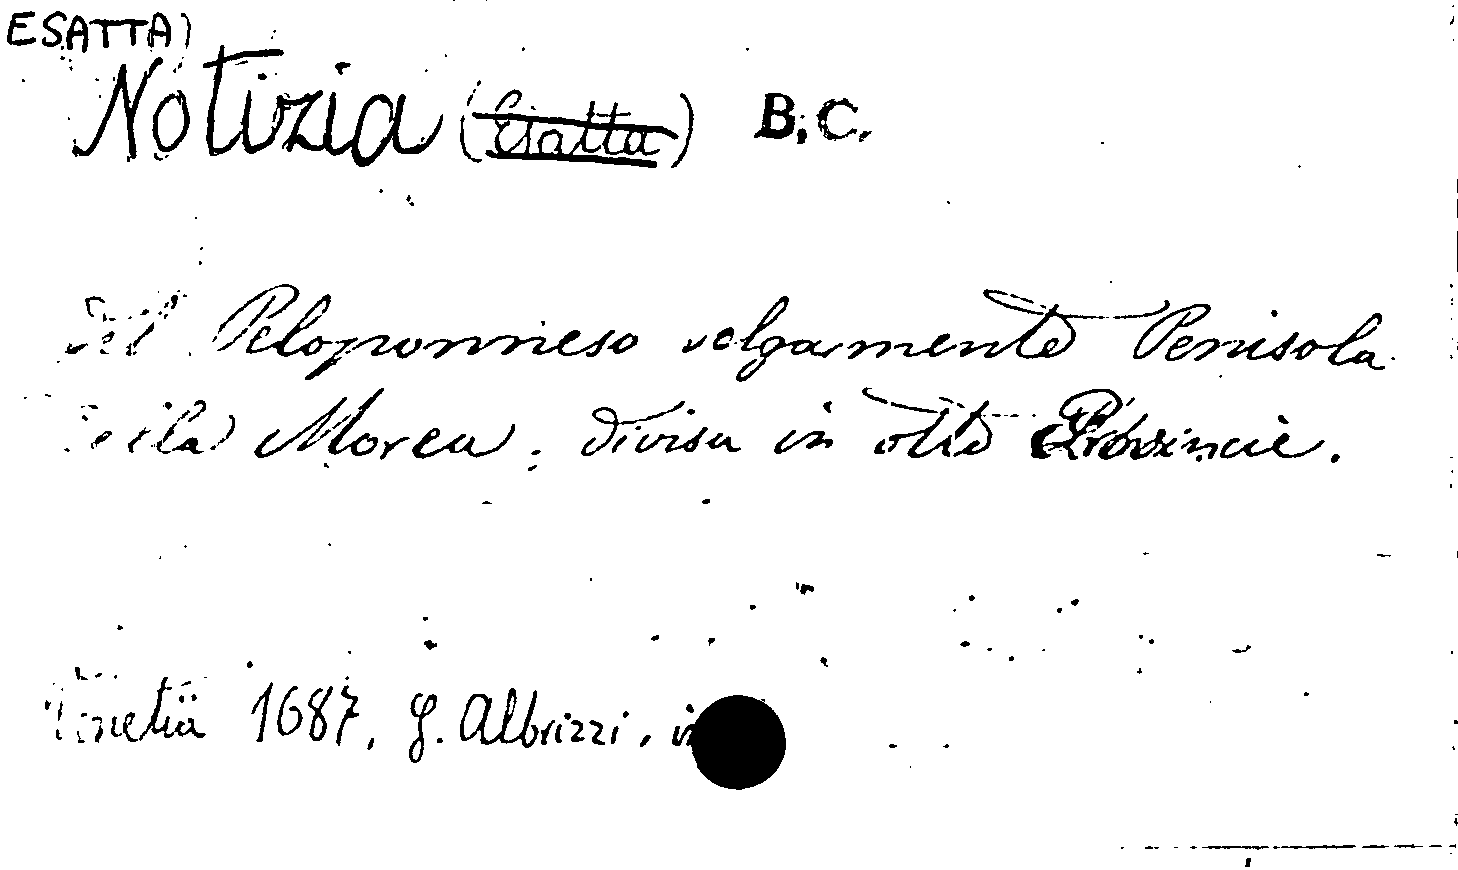 ESATTA)
Notizia (Esatta) B. C.
del Peloponneso volgamente Penisola
della Morea, divisa in otto Provincie.
Venetia 1687, G. Albrizzi, in